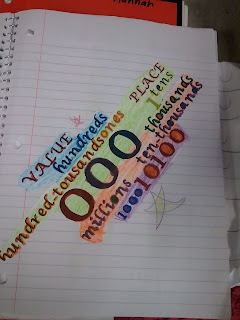 Hannah
VALUE PLACE
hundreds 1 tens
hundred.tousandsones
000 thousands
millions ten-thousands
1000 10100